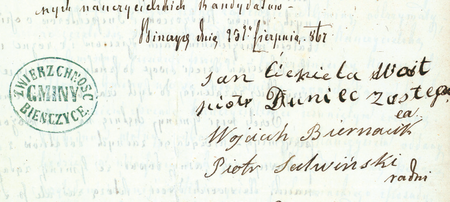 nych nauczycielskich Kandydatów
Binczyce dnia 231º Sierpnia 867
ZWIERZCHNOŚĆ
GMINY
BIENCZYCE.
Jan Ciekiela Wojt
piotr Duniec Zastępca
Wojciech Biernacik
Piotr Salwiński
radni